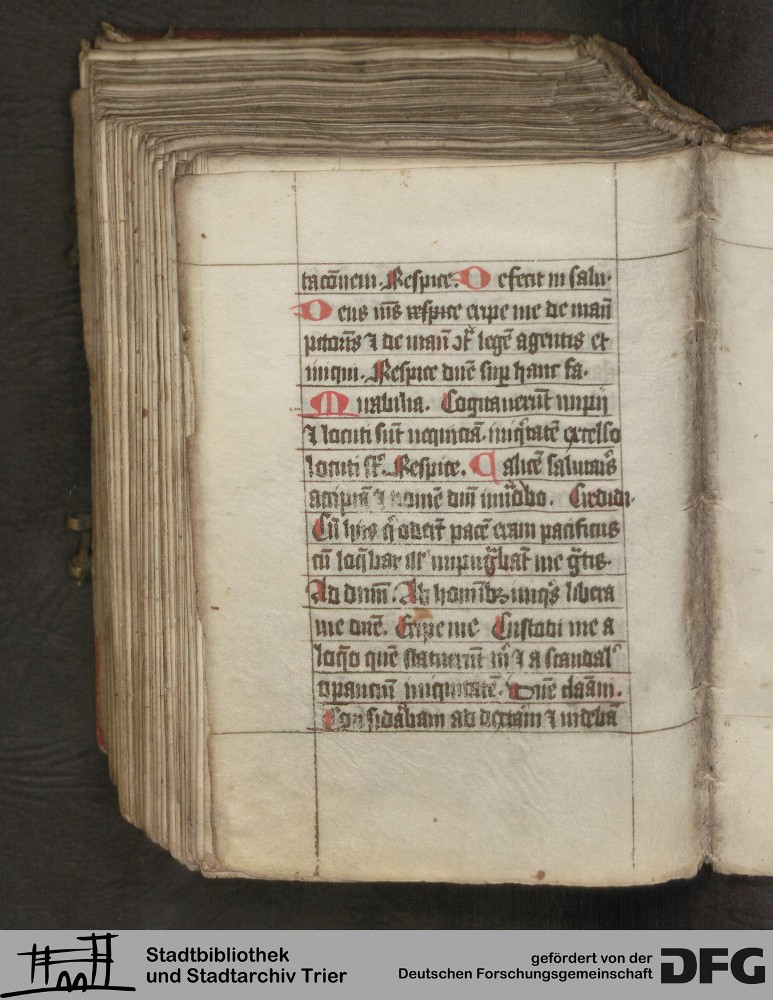 tac̄onem. Respice. Defecit in salu-
Deus m̄s respice eripe me de man̄
pctor̄is ⁊ de man̄ ɔt̄ legē agentis et
iniqui. Respice dn̄e sup hanc fa.
Mirabilia. Cogitauerūt impij
⁊ locuti sūt nequiciā. iniq̄tatē excelso
locuti st̄. Respice. Calicē salutar̄s
accipiā ⁊ nomē dn̄i inuōbo. Credidi.
Cū hijs q̄ odert̄ pacē eram pacificus
cū loq̄bar ill̄ inpuḡbāt me ḡtis.
Ad dnm̄. Ab homībꝫ iniq̄s libera
me dn̄e. Eripe me Custodi me a
laq̄o quē statuerūt m̄ ⁊ a scandal̄
opanciū iniquitatē. Dn̄e clāam.
Considābam ad dextām ⁊ uidebā
Stadtbibliothek
und Stadtarchiv Trier
gefördert von der
Deutschen Forschungsgemeinschaft
DFG